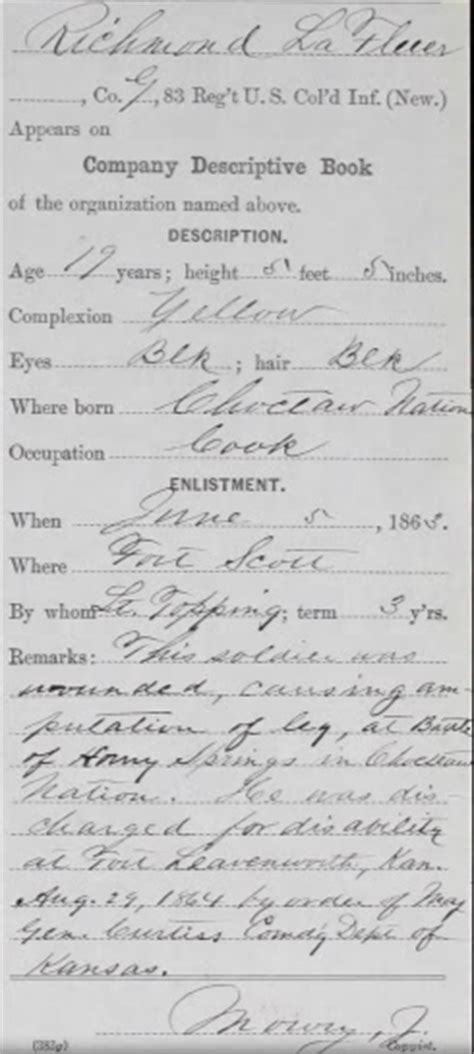 Richmond La Fleer
, Co. G, 83 Reg't U. S. Col'd Inf. (New.)
Appears on
Company Descriptive Book
of the organization named above.
DESCRIPTION.
Age 19 years; height 5 feet 5 inches.
Complexion Yellow
Eyes Blk ; hair Blk
Where born Choctaw Nation
Occupation Cook
ENLISTMENT.
When June 5, 1863.
Where Fort Scott
By whom Lt. Topping; term 3 y'rs.
Remarks: This soldier was
wounded, causing am-
putation of leg, at Battle
of Honey Springs in Choctaw
Nation. He was dis-
charged for disability
at Fort Leavenworth, Kan.
Aug. 29, 1864 by order of Maj
Gen. Curtiss Comd'g Dept of
Kansas.
Mowry, J.
(382g) Copyist.